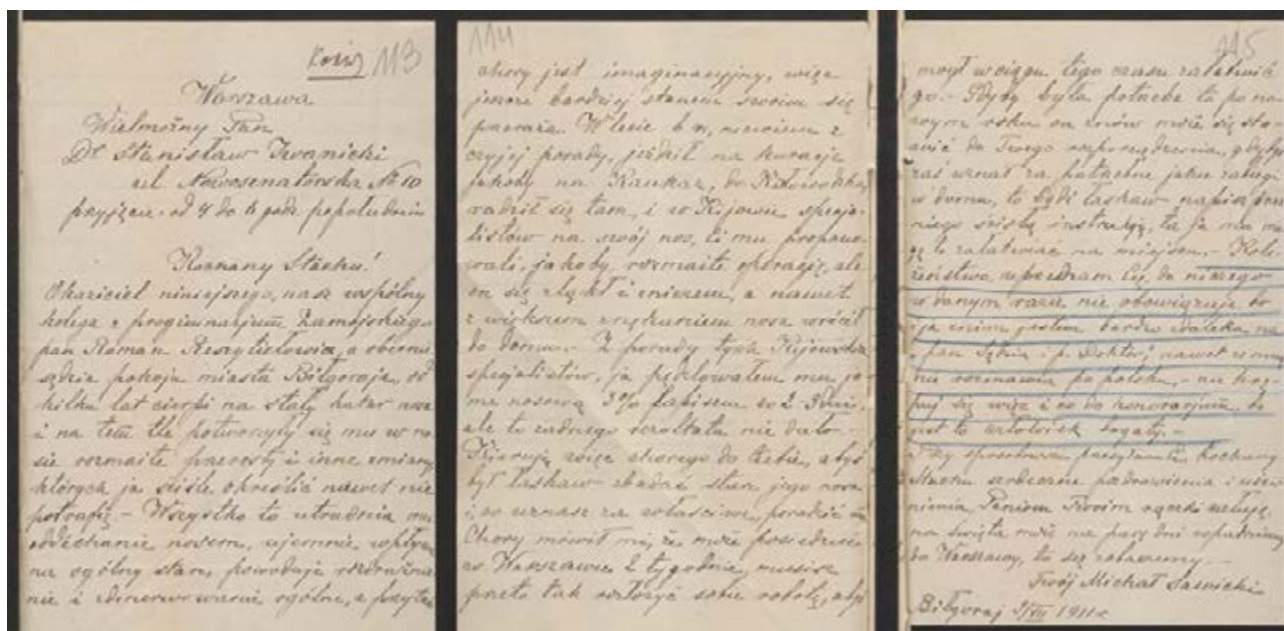 113
Warszawa
Wielmożny Pan
Dr Stanisław Iwanicki
ul. Nowosenatorska № 10
przyjęcie od 4 do 6 godz popołudniu
Kochany Stasku!
Okaziciel niniejszego, nasz wspólny
kolega z progimnazjum Zamojskiego
pan Roman, a obecnie
sędzia pokoju miasta Biłgoraja, od
kilku lat cierpi na stały katar nosa
i na tem tle potworzyły się mu w no-
sie rozmaite przerosty i inne zmiany
których ja ściśle określić nawet nie
potrafię – Wszystko to utrudnia mu
oddechanie nosem, ujemnie wpływa
na ogólny stan, powoduje rozdrażnie
nie i zdenerwowanie ogólne, a przytem
114
chory jest imaginacyjny, więc
jeszcze bardziej stanem swoim się
przeraża. W lecie b r, niewiem z
czyjej porady, jeździł na kuracje
jakoby na Kaukaz, do Kisłowodzka,
radził się tam, i w Kijowie specja-
listów na swój nos, ci mu propono-
wali, jakoby, rozmaite operacje, ale
on się zląkł i z niczem, a nawet
z większem nosa wrócił
do domu. – Z porady tych Kijowskich
specjalistów, ja pędzlowałem mu ja-
mę nosową 3% lapisem co 2 dni,
ale to żadnego rezultatu nie dało. –
Kieruję więc chorego do Ciebie, abyś
był łaskaw zbadać stan jego nosa
i, co uznasz za właściwe, poradzić mu
Chory mówił mi, że może posiedzieć
w Warszawie 2 tygodnie, musisz
przeto tak rozłożyć sobie robotę, abyś
115
mógł w ciągu tego czasu załatwić
go. – Gdyby była potrzeba to po no-
wym roku on znów może się sta-
wić do Twego rozporządzenia, gdybyś
zaś uznał za potrzebne jakie zabiegi
w domu, to bądź łaskaw napisz do
niego ścisłą instrukcję, to ja mu mo-
gę to załatwiać na miejscu. – Kole-
żeństwo, uprzedzam Cię, do niczego
w danym razie nie obowiązuje bo
ja z nim jestem bardzo daleko, na
„pan Sędzia i p. Doktór”, nawet ze mną
nie rozmawia po polsku, – nie krę-
puj się więc i co do honorarjum, bo
jest to człowiek bogaty. –
Przy sposobności przesyłam Ci, kochany
Stasku serdeczne pozdrowienia i uści-
śnienia, Paniom Twoim rączki całuję,
na święta może na parę dni
do Warszawy, to się zobaczymy. –
Twój Michał Sawicki
Biłgoraj XII 1911 r